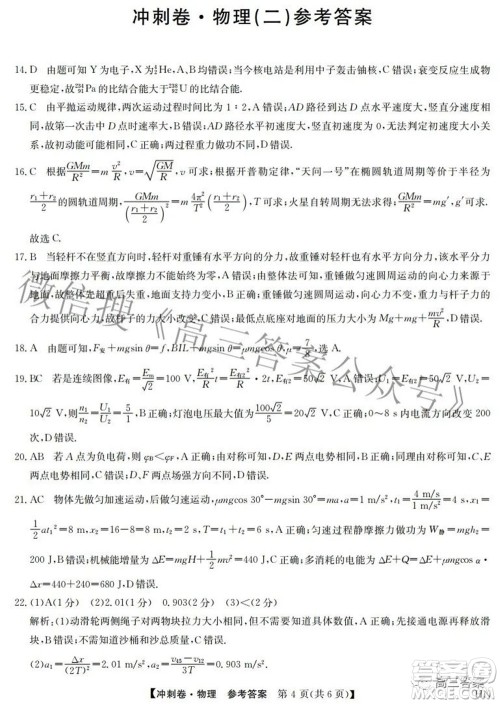 冲刺卷·物理(二)参考答案
14. D 由题可知 Y 为电子,X 为⁴₂He,A、B 均错误;当今核电站是利用中子轰击铀核,C 错误;衰变后生成物
更稳定,故²³⁴₉₁Pa 的比结合能大于²³⁸₉₂U 的比结合能,D 正确.
15. C 由平抛运动规律,两次运动过程时间比为 1∶2,A 错误;AD 路径到达 D 点水平速度大,竖直分速度相
同,故第一次击中 D 点时速率大,B 错误;两次运动轨迹为不同抛物线,不可能相切,D 错误;若初速度相
故初动能可能相同,C 正确;两过程重力做功相同,D 错误.
16. C 根据 GMm/R² = m v²/R, v = √(GM/R), v 可求;根据开普勒定律,“天问一号”在椭圆轨道周期等价于半径为
(r₁+r₂)/2 的圆轨道周期, GMm/((r₁+r₂)/2)² = m 4π²/T² ((r₁+r₂)/2), T 可求;火星自转转周期无法求得; GMm/R² = mg′, g′ 可求.
故选 C.
17. B 当轻杆不在竖直方向时,轻杆对重锤有水平方向的分力,故打夯机对轻杆也有水平方向的分力,该分力
与地面摩擦力平衡,故地面摩擦力不可能始终为零,A 错误;重锤做匀速圆周运动的向心力由重锤的重力
和杆的作用力的合力提供,B 正确,C 错误;重锤做匀速圆周运动,向心力不变,重力与杆子的力
的合力提供向心力,重锤在最低点底座对地面的压力大小为 Mg+mg+m v²/R,D 错误.
18. A 由题可知,F安+mgsin θ=f,BIL+mgsin θ=μmgcos θ,μ=7/8,选 A.
19. BC 若是连续图像,E有=Em/√2=100 V,E有²/R t=E有₂²/R T,E有₂=50√2 V,U₁=E有₂=50√2 V,U₂=
10√2 V,则 n₁/n₂=U₁/U₂=5/1,B 正确;灯泡电压最大值为 100√2/5=20√2 V,C 正确;0~8 s 内电流方向改变 200
次,D 错误.
20. AB 若 A 点为负电荷,则 φB<φC,A 正确;由对称可知,D、E 两点电势相同,B 正确;D、F 两点和 E、F
两点电势差相同,C 错误;D、E 两点场强方向不同,D 错误.
21. AC 物体先做匀加速运动,后做匀速运动,μmgcos 30°−mgsin 30°=ma,t₁=(4 m/s)/(1 m/s²)=4 s,x₁=
½at₁²=8 m,x₂=16−8=8 m,t₂=2 s,T=t₁+t₂=6 s,A 正确;匀速过程静摩擦力做功为 W静=mgh₂=
200 J,B 错误;机械能增量为 ΔE=mgH+½mv²=440 J,C 正确;多消耗的电能为 ΔE+Q=ΔE+μmgcos α·
Δx=440+240=680 J,D 错误.
22. (1)A(1 分) (2)2.01(1 分) 0.903(2 分) (3)<(2 分)
解析:(1)动滑轮两侧绳子对两物块拉力大小相等,但不需要知道具体数值,A 正确;没有必要先释放滑
块,B 错误;不需要知道沙桶和沙总质量,C 错误.
(2)a=Δx/(2T)²=2.01 m/s²,v=(v₁₅−v₁₃)/2T=0.903 m/s.
冲刺卷·物理 参考答案 第 4 页(共 6 页)
微信搜《高三答案公众号》
高三答案